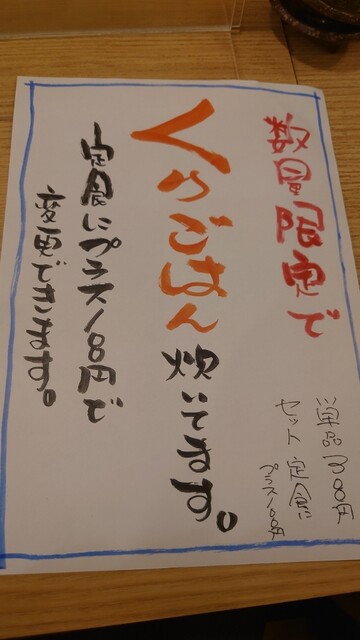 数量限定で
くりごはん炊いてます。
定食にプラス100円で
変更できます。
単品300円
セット定食に
プラス100円